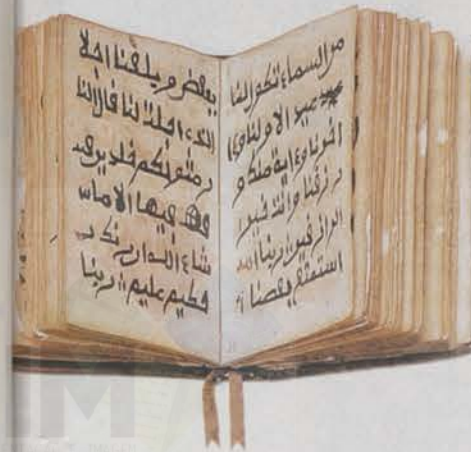 من السماء تكون لنا
عيدا لاولنا و
اخرنا واية منك و
رزقنا وانت خير
الرازقين ربنا
استمتع بعضنا
ببعض وبلغنا اجلا
الذي اجلت لنا قال النا
ر مثويكم خلدين
فيها الا ما
شاء الله ان ربك
حكيم عليم ربنا